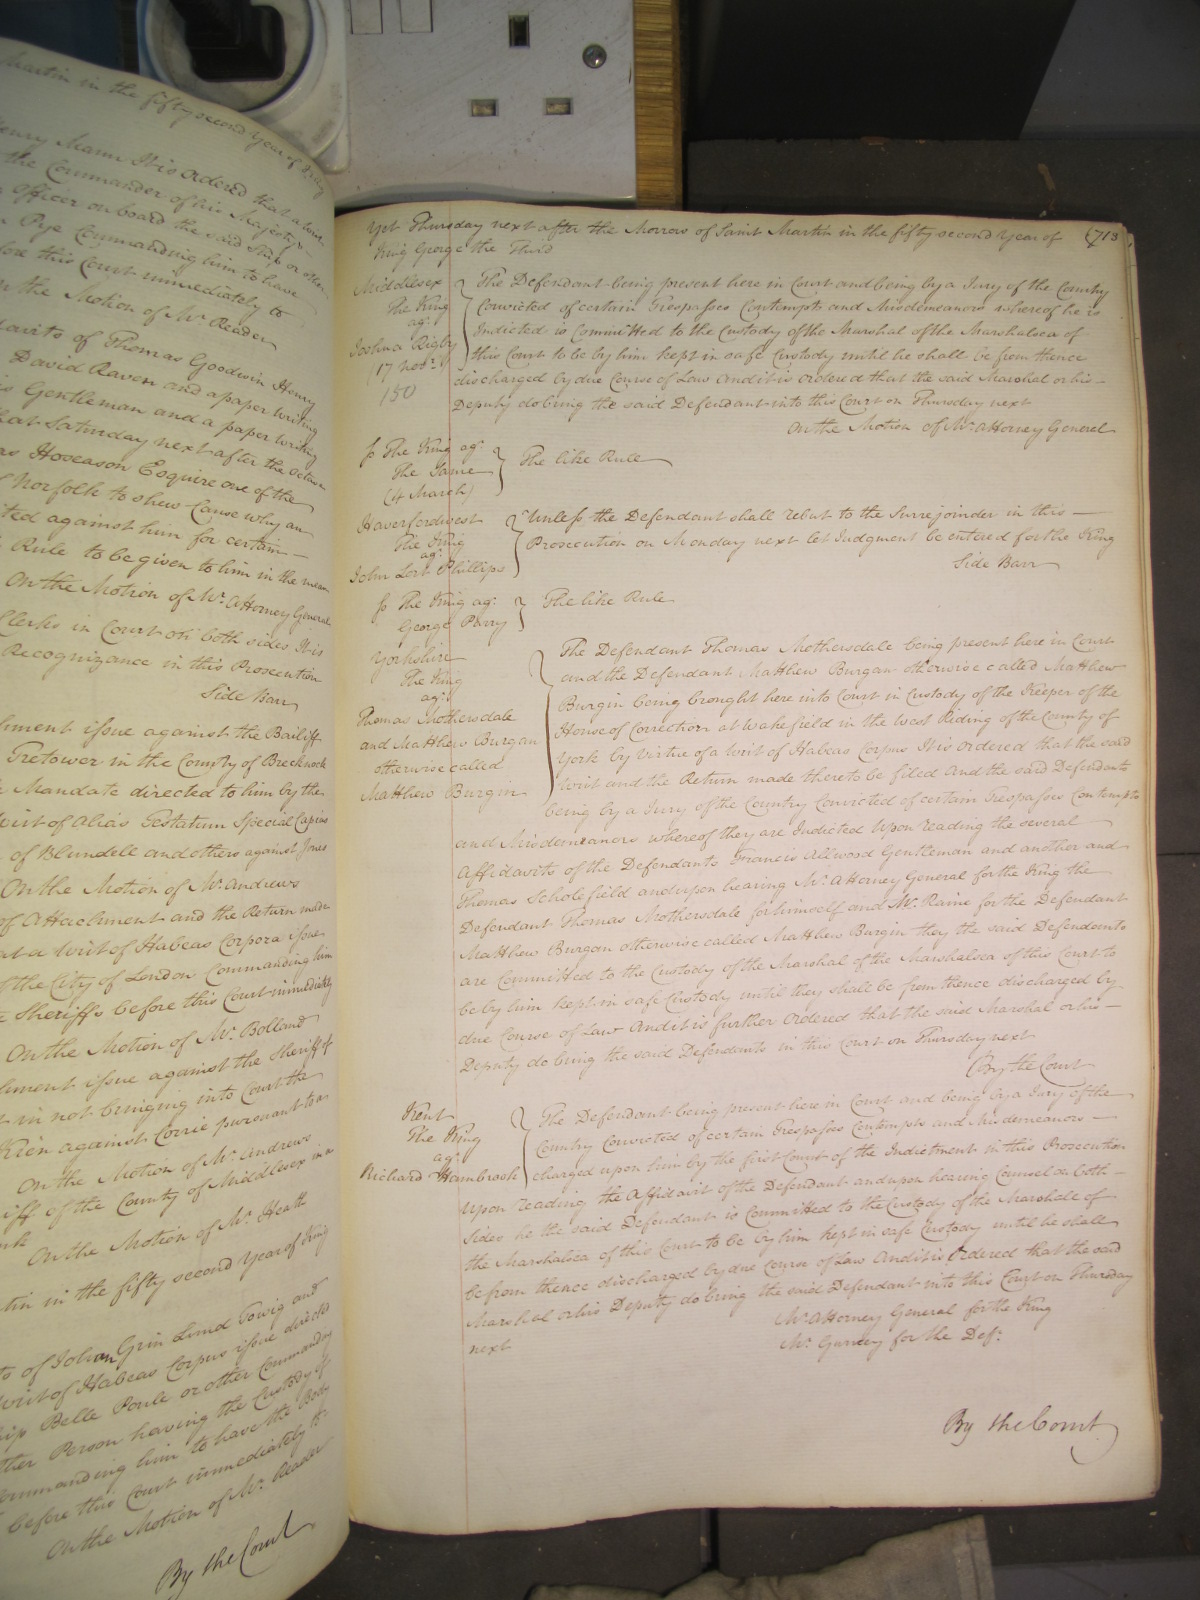 Martin in the fifty second Year of King
Henry Mann It is ordered that a
the Commander of his Majestys
officer on board the said Ship or other
Pye Commanding him to have
this Court immediately to
the Motion of Mr. Reader
davits of Thomas Goodwin Henry
David Raven and a paper writing
Gentleman and a paper writing
that Saturday next after the Octave
as Hoseason Esquire one of the
Norfolk to shew Cause why an
ted against him for certain
Rule to be given to him in the mean
On the Motion of Mr. Attorney General
Clerks in Court on both sides It is
Recognizance in this Prosecution
Side Barr
hment issue against the Bailiff
Tretower in the County of Brecknock
Mandate directed to him by the
Writ of Alias Testatum Special Capias
of Blundell and others against Jones
On the Motion of Mr. Andrews
of Attachment and the Return made
at a Writ of Habeas Corpora issue
of the City of London Commanding him
Sheriffs before this Court immediately
On the Motion of Mr. Bolland
hment issue against the Sheriff of
in not bringing into Court the
Rien against Corrie pursuant to a
On the Motion of Mr. Andrews
iff of the County of Middlesex in a
On the Motion of Mr. Heath
tin in the fifty second Year of King
of Johan Grin Lund Towig and
Writ of Habeas Corpus issue directed
Ship Belle Poule or other Commanding
ther Person having the Custody of
ommanding him to have the Body
before this Court immediately to
On the Motion of Mr. Reader
By the Court
Yet Thursday next after the Morrow of Saint Martin in the fifty second Year of (713
King George the Third
Middlesex
The King
agt.
Joshua Rigby
(17 Novr.)
150
The Defendant being present here in Court and being by a Jury of the Country
Convicted of certain Trespasses Contempts and Misdemeanors whereof he is
Indicted is Committed to the Custody of the Marshal of the Marshalsea of
this Court to be by him kept in safe Custody until he shall be from thence
discharged by due Course of Law And it is ordered that the said Marshal or his
Deputy do bring the said Defendant into this Court on Thursday next
On the Motion of Mr. Attorney General
Js The King agt.
The Same
(4 March)
The like Rule
Haverfordwest
The King
agt.
John Lort Phillips
Unless the Defendant shall rebut to the Surrejoinder in this
Prosecution on Monday next let Judgment be entered for the King
Side Barr
Js The King agt.
George Parry
The like Rule
Yorkshire
The King
agt.
Thomas Mothersdale
and Matthew Burgan
otherwise called
Matthew Burgin
The Defendant Thomas Mothersdale being present here in Court
and the Defendant Matthew Burgan otherwise called Matthew
Burgin being brought here into Court in Custody of the Keeper of the
House of Correction at Wakefield in the West Riding of the County of
York by virtue of a Writ of Habeas Corpus It is ordered that the said
Writ and the Return made thereto be filed And the said Defendants
being by a Jury of the Country Convicted of certain Trespasses Contempts
and Misdemeanors whereof they are Indicted Upon reading the several
Affidavits of the Defendants Francis Allwood Gentleman and another and
Thomas Scholefield and upon hearing Mr. Attorney General for the King the
Defendant Thomas Mothersdale for himself and Mr. Raine for the Defendant
Matthew Burgan otherwise called Matthew Burgin they the said Defendants
are Committed to the Custody of the Marshal of the Marshalsea of this Court to
be by him kept in safe Custody until they shall be from thence discharged by
due Course of Law And it is further Ordered that the said Marshal or his
Deputy do bring the said Defendants in this Court on Thursday next
By the Court
Kent
The King
agt.
Richard Hambrook
The Defendant being present here in Court and being by a Jury of the
Country Convicted of certain Trespasses Contempts and Misdemeanors
charged upon him by the first Count of the Indictment in this Prosecution
Upon reading the Affidavit of the Defendant and upon hearing Counsel on both
Sides he the said Defendant is Committed to the Custody of the Marshall of
the Marshalsea of this Court to be by him kept in safe Custody until he shall
be from thence discharged by due Course of Law And it is Ordered that the said
Marshal or his Deputy do bring the said Defendant into this Court on Thursday
next
Mr. Attorney General for the King
Mr. Gurney for the Deft.
By the Court